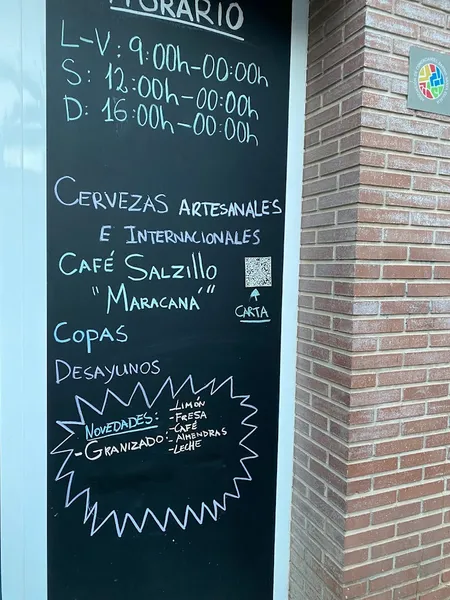 HORARIO
L-V: 9:00h-00:00h
S: 12:00h-00:00h
D: 16:00h-00:00h
CERVEZAS ARTESANALES
E INTERNACIONALES
CAFÉ SALZILLO
"MARACANÁ"
CARTA
COPAS
DESAYUNOS
NOVEDADES:
-GRANIZADO:
-LIMÓN
-FRESA
-CAFÉ
-ALMENDRAS
-LECHE